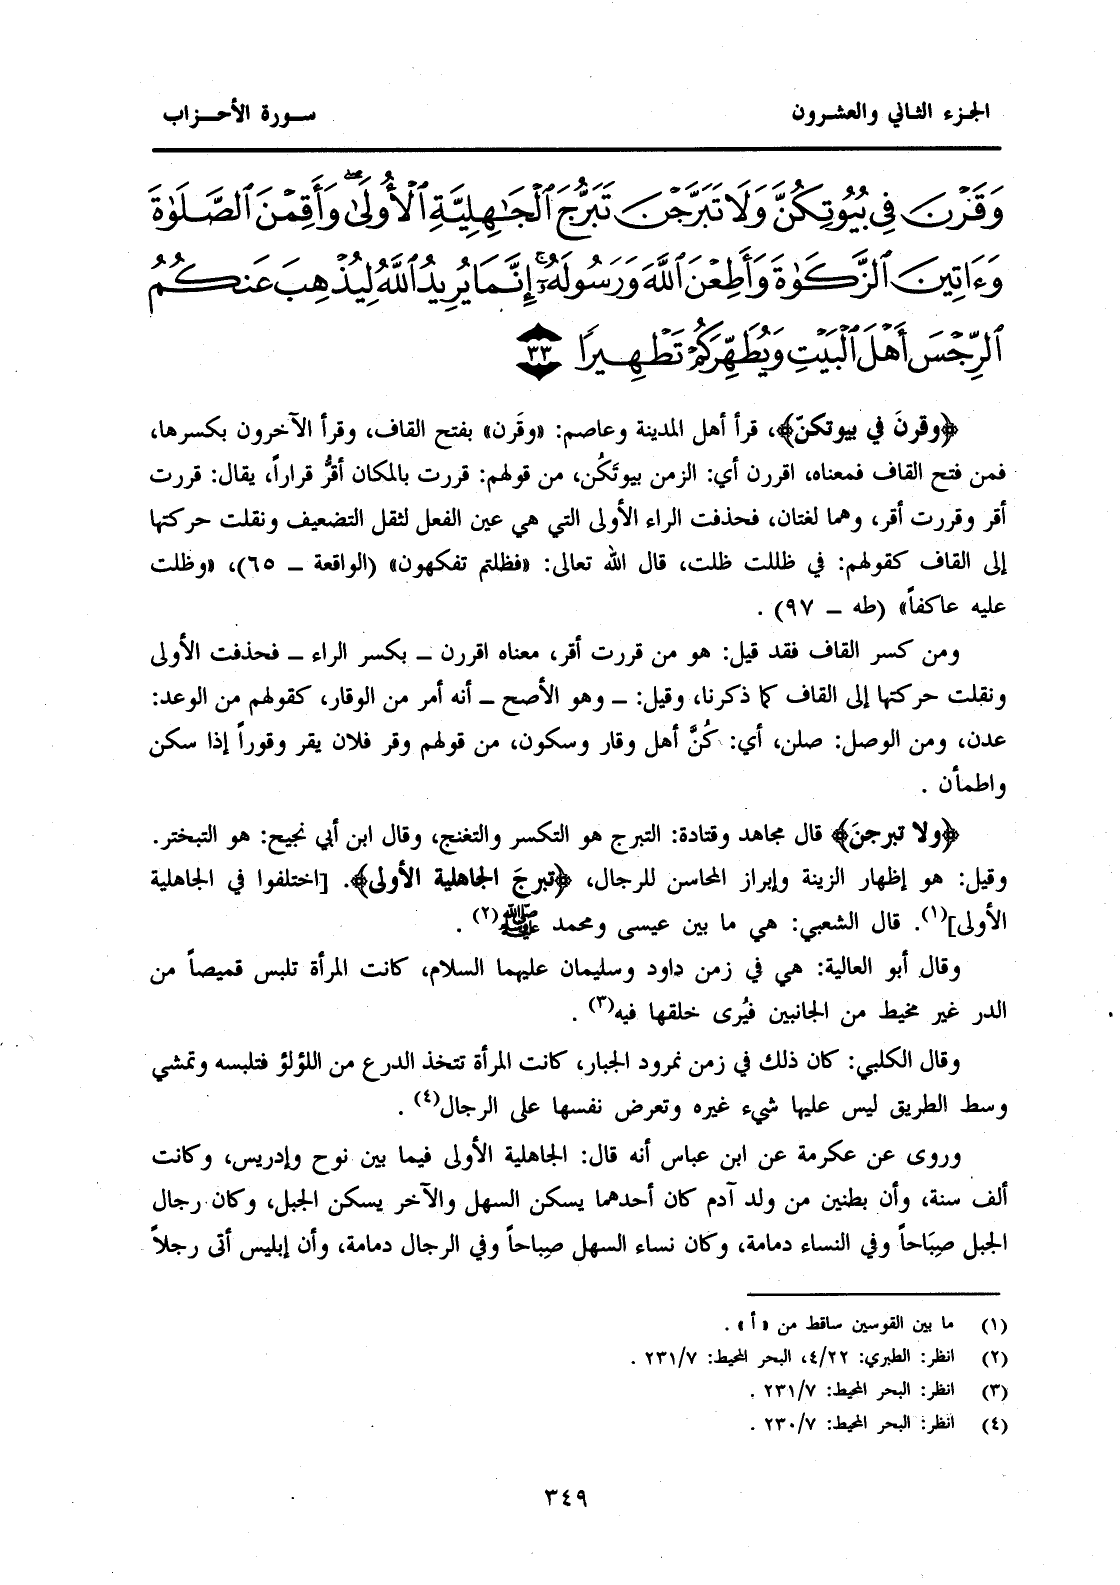 الجزء الثاني والعشرون
سورة الأحزاب
وَقَرْنَ فِي بُيُوتِكُنَّ وَلَا تَبَرَّجْنَ تَبَرُّجَ ٱلْجَٰهِلِيَّةِ ٱلْأُولَىٰ ۖ وَأَقِمْنَ ٱلصَّلَوٰةَ
وَءَاتِينَ ٱلزَّكَوٰةَ وَأَطِعْنَ ٱللَّهَ وَرَسُولَهُۥٓ ۚ إِنَّمَا يُرِيدُ ٱللَّهُ لِيُذْهِبَ عَنكُمُ
ٱلرِّجْسَ أَهْلَ ٱلْبَيْتِ وَيُطَهِّرَكُمْ تَطْهِيرًا ٣٣
﴿وقرنَ في بيوتكنّ﴾، قرأ أهل المدينة وعاصم: «وقَرن» بفتح القاف، وقرأ الآخرون بكسرها،
فمن فتح القاف فمعناه، اقررن أي: الزمن بيوتَكُن، من قولهم: قررت بالمكان أقرُّ قراراً، يقال: قررت
أقر وقررت أقر، وهما لغتان، فحذفت الراء الأولى التي هي عين الفعل لثقل التضعيف ونقلت حركتها
إلى القاف كقولهم: في ظللت ظلت، قال الله تعالى: «فظلتم تفكهون» (الواقعة – ٦٥)، «وظلت
عليه عاكفاً» (طه – ٩٧) .
ومن كسر القاف فقد قيل: هو من قررت أقر، معناه اقررن – بكسر الراء – فحذفت الأولى
ونقلت حركتها إلى القاف كما ذكرنا، وقيل: – وهو الأصح – أنه أمر من الوقار، كقولهم من الوعد:
عدن، ومن الوصل: صلن، أي: كُنَّ أهل وقار وسكون، من قولهم وقر فلان يقر وقوراً إذا سكن
واطمأن .
﴿ولا تبرجنَ﴾ قال مجاهد وقتادة: التبرج هو التكسر والتغنج، وقال ابن أبي نجيح: هو التبختر.
وقيل: هو إظهار الزينة وإبراز المحاسن للرجال، ﴿تبرجَ الجاهلية الأولى﴾. [اختلفوا في الجاهلية
الأولى](١). قال الشعبي: هي ما بين عيسى ومحمد ﷺ(٢) .
وقال أبو العالية: هي في زمن داود وسليمان عليهما السلام، كانت المرأة تلبس قميصاً من
الدر غير مخيط من الجانبين فيُرى خلقها فيه(٣) .
وقال الكلبي: كان ذلك في زمن نمرود الجبار، كانت المرأة تتخذ الدرع من اللؤلؤ فتلبسه وتمشي
وسط الطريق ليس عليها شيء غيره وتعرض نفسها على الرجال(٤) .
وروى عن عكرمة عن ابن عباس أنه قال: الجاهلية الأولى فيما بين نوح وإدريس، وكانت
ألف سنة، وأن بطنين من ولد آدم كان أحدهما يسكن السهل والآخر يسكن الجبل، وكان رجال
الجبل صِبَاحاً وفي النساء دمامة، وكان نساء السهل صِباحاً وفي الرجال دمامة، وأن إبليس أتى رجلاً
(١) ما بين القوسين ساقط من «أ» .
(٢) انظر: الطبري: ٤/٢٢، البحر المحيط: ٢٣١/٧ .
(٣) انظر: البحر المحيط: ٢٣١/٧ .
(٤) انظر: البحر المحيط: ٢٣٠/٧ .
٣٤٩